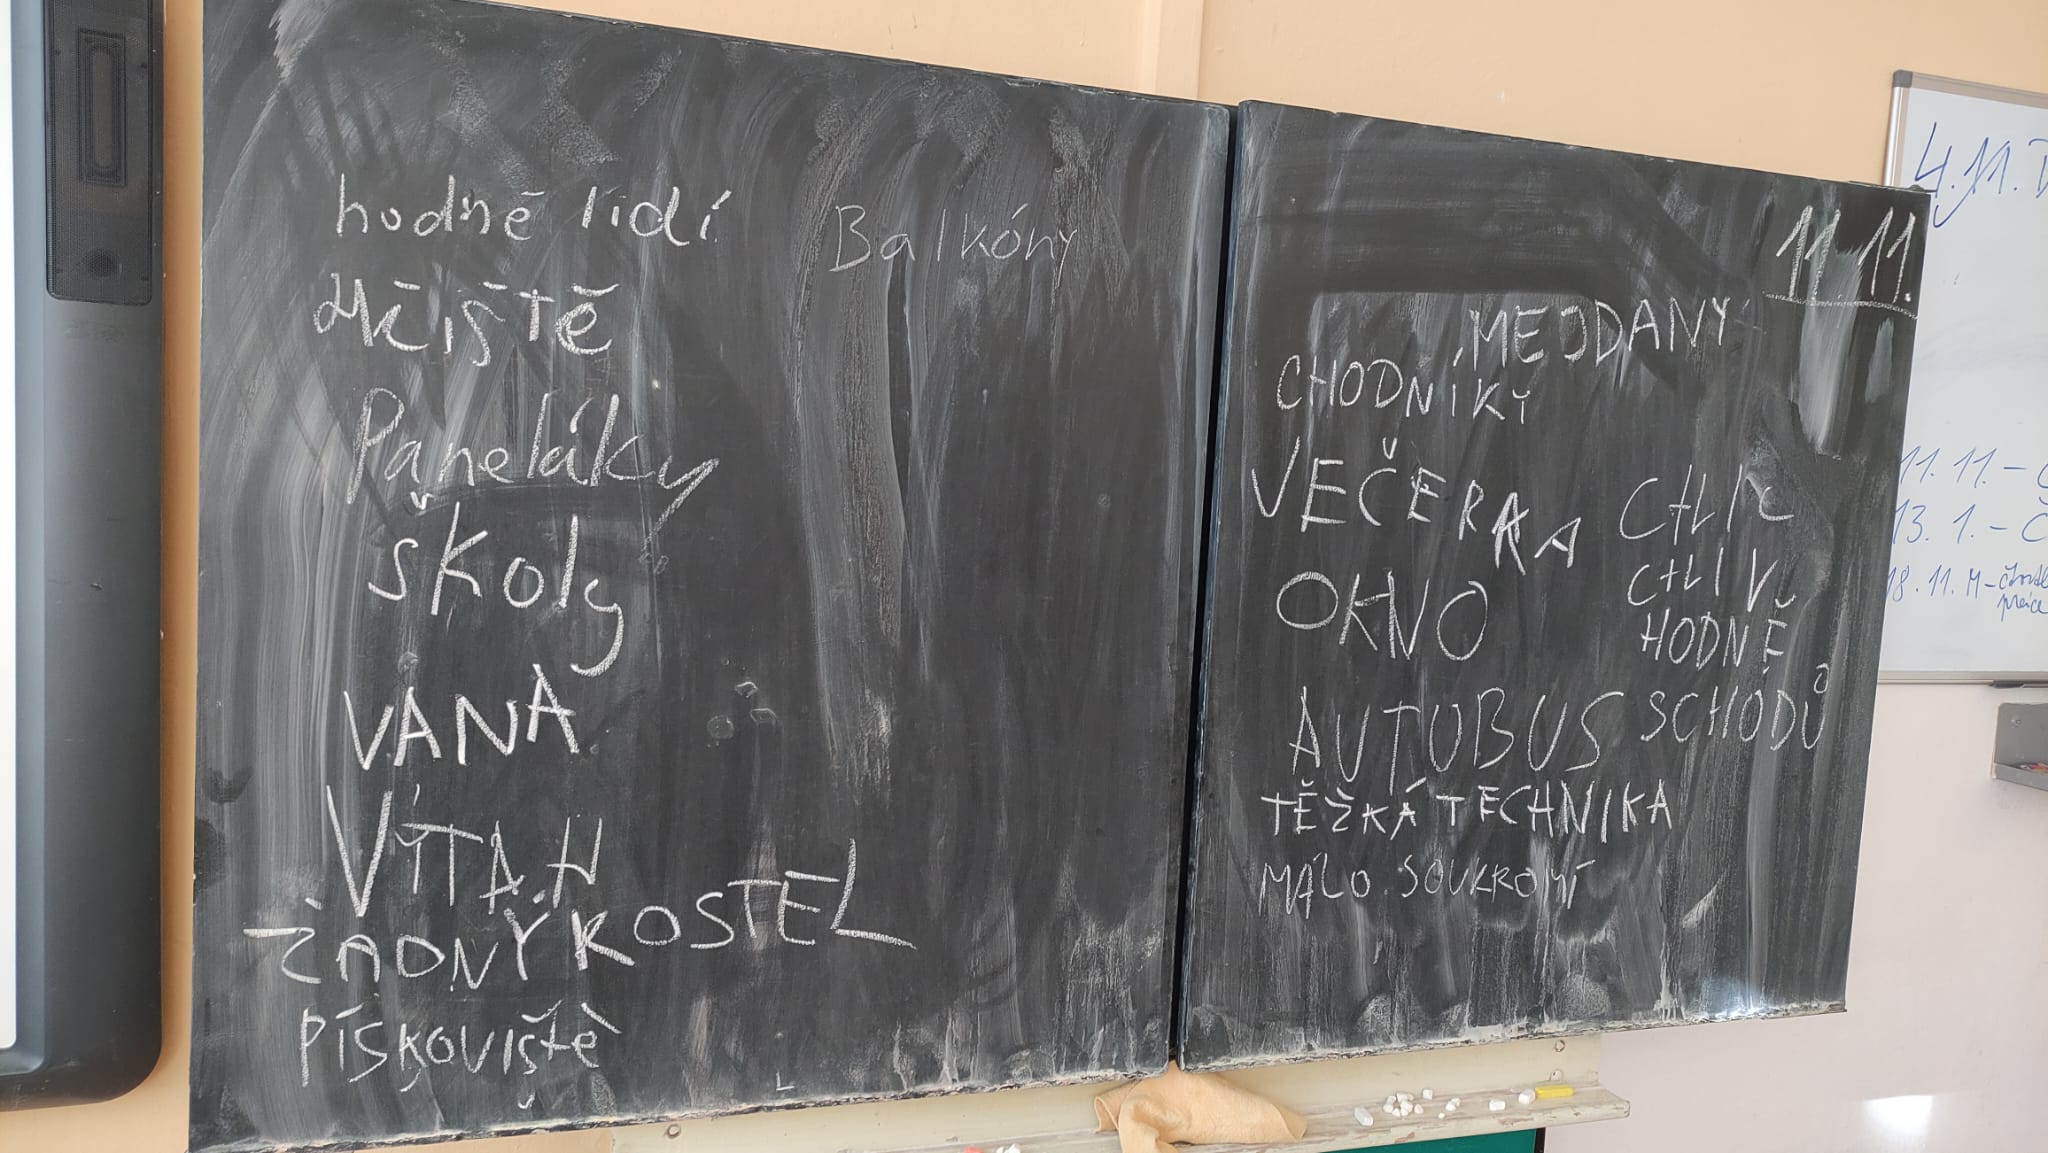 hodně lidí
Balkóny
Paneláky
školy
VANA
VÝTAH
ŽÁDNÝ KOSTEL
PÍSKOVIŠTĚ
11.11.
MEJDANY
CHODNÍKY
VEČERKA
OKNO
CHLÍV
HODNĚ
SCHODŮ
AUTOBUS
TĚŽKÁ TECHNIKA
MÁLO SOUKROMÍ
4.11.
11.11. –
13.1. – Č
18.11. M –
práce